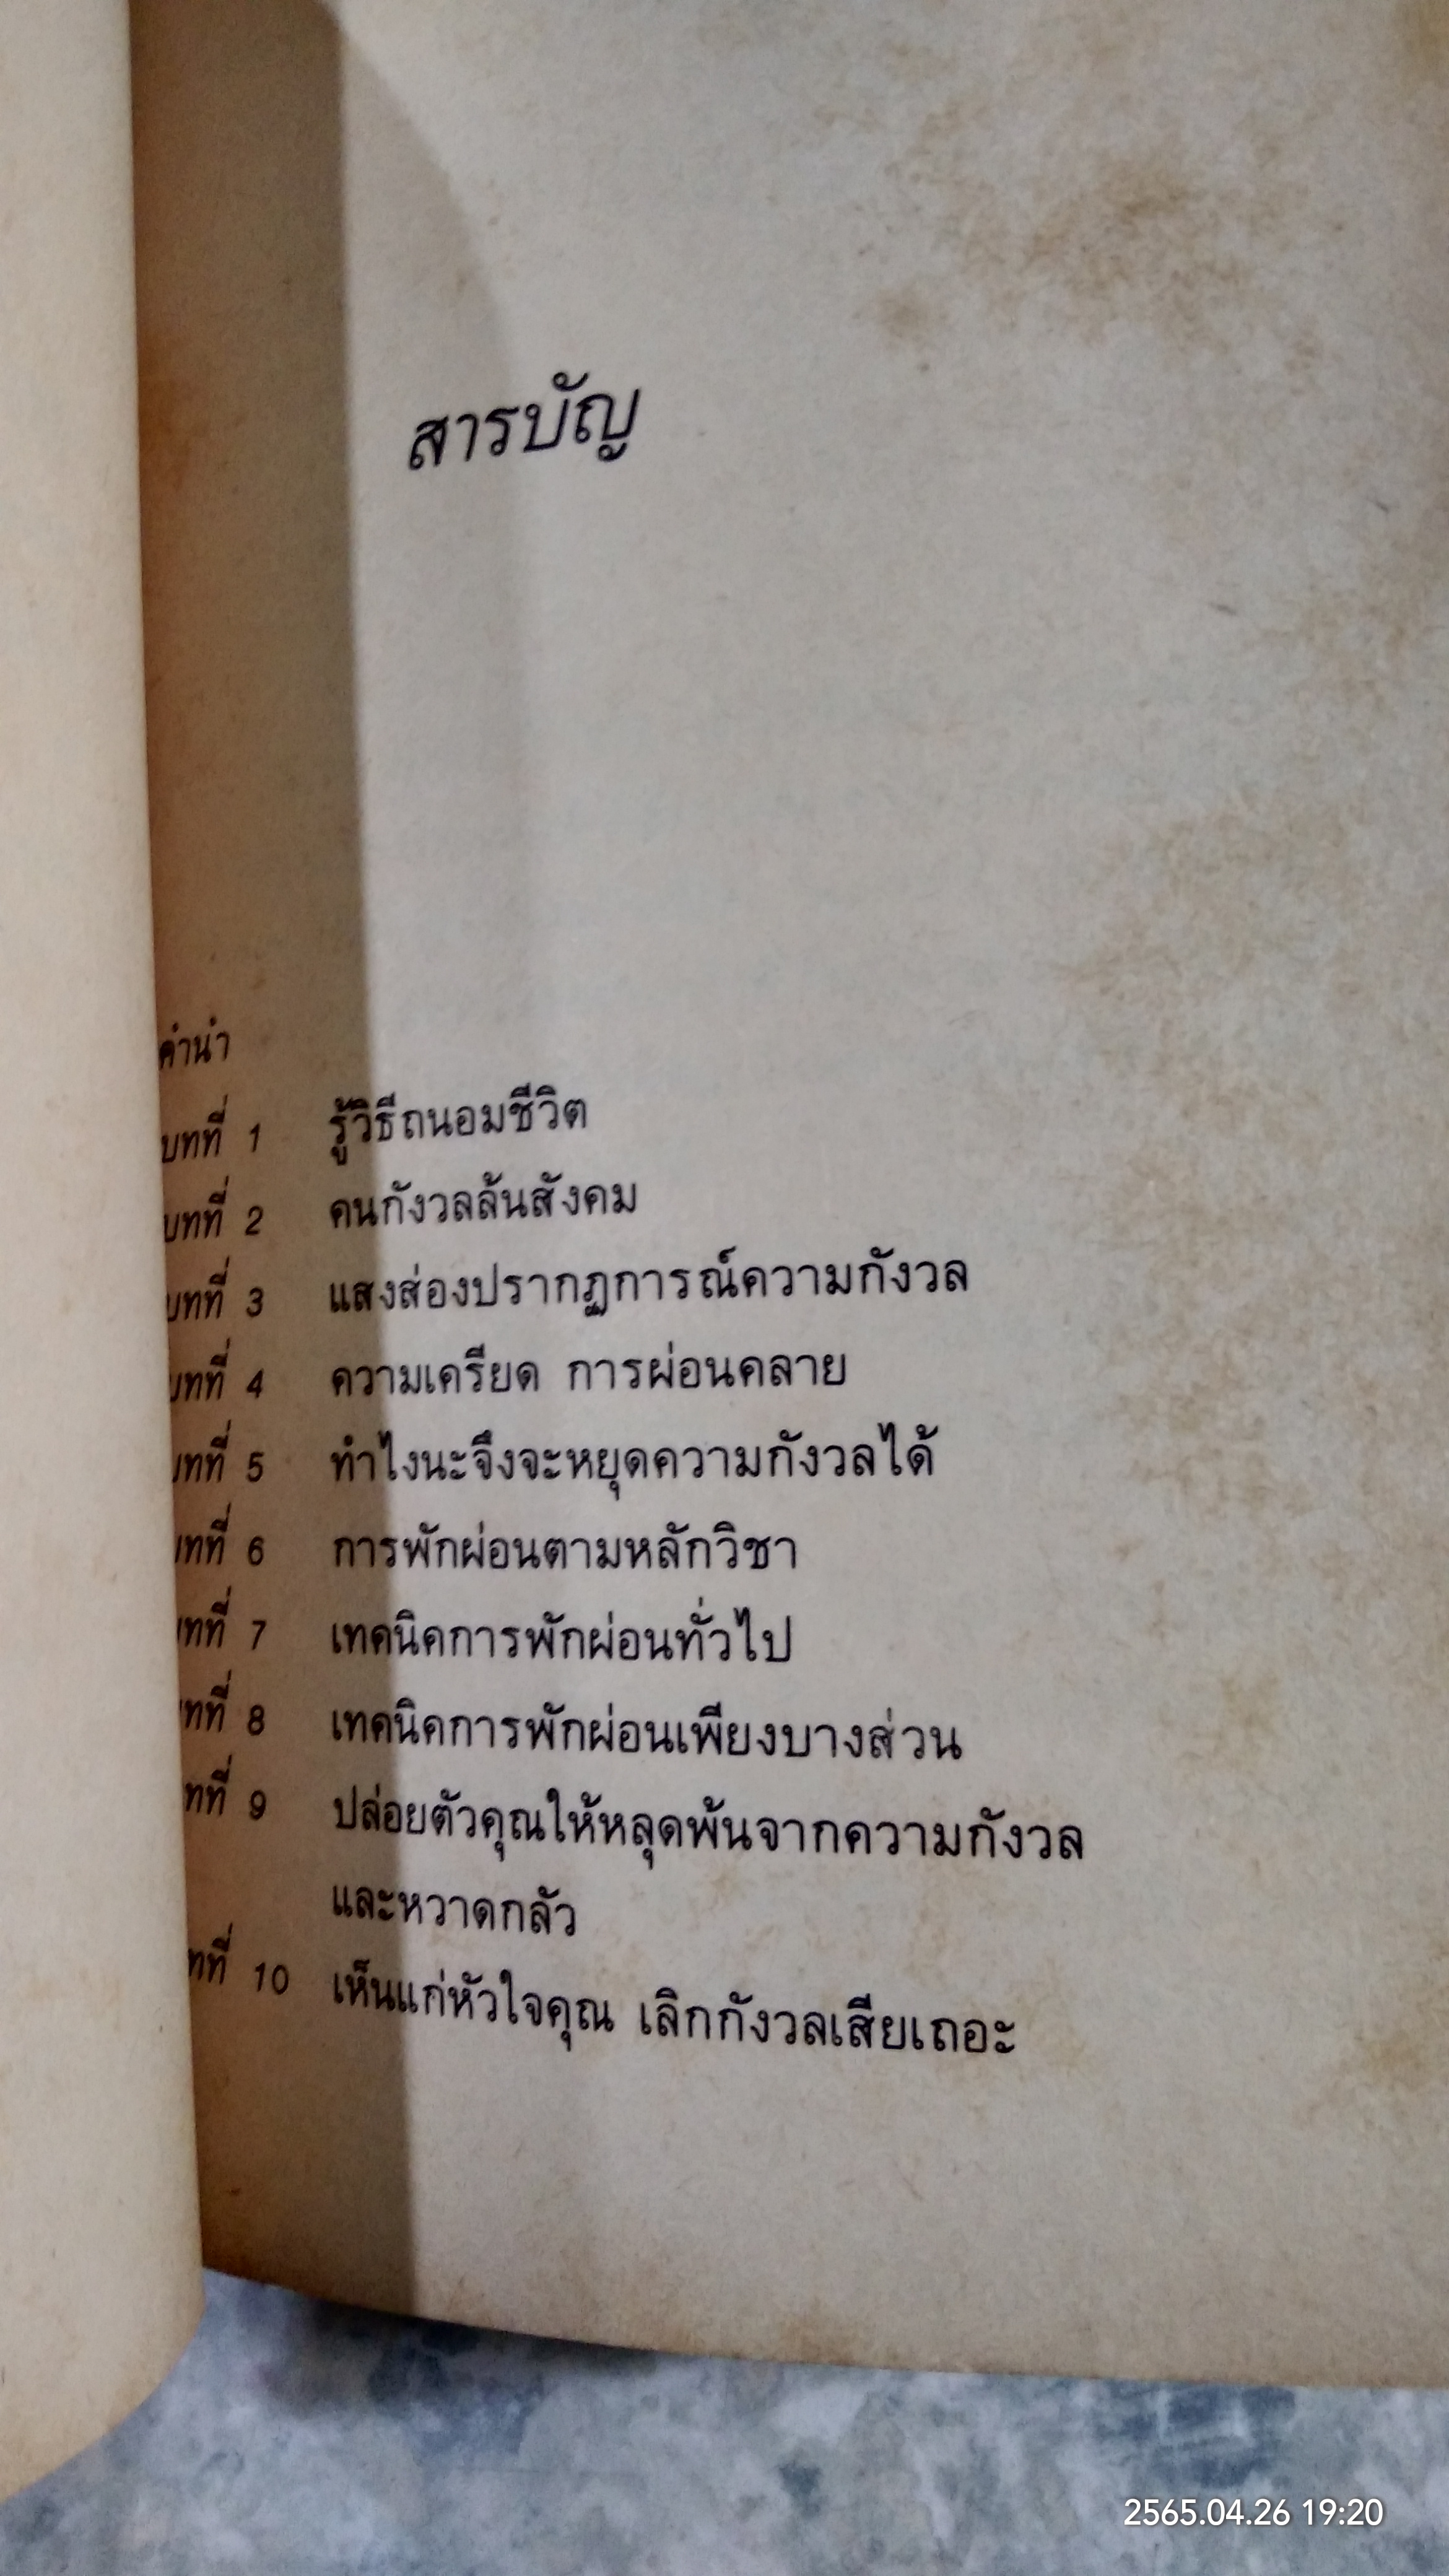 สารบัญ
คำนำ
บทที่ 1 รู้วิธีถนอมชีวิต
บทที่ 2 คนกังวลล้นสังคม
บทที่ 3 แสงส่องปรากฏการณ์ความกังวล
บทที่ 4 ความเครียด การผ่อนคลาย
บทที่ 5 ทำไงนะจึงจะหยุดความกังวลได้
บทที่ 6 การพักผ่อนตามหลักวิชา
บทที่ 7 เทคนิคการพักผ่อนทั่วไป
ทที่ 8 เทคนิคการพักผ่อนเพียงบางส่วน
ทที่ 9 ปล่อยตัวคุณให้หลุดพ้นจากความกังวล
และหวาดกลัว
ทที่ 10 เห็นแก่หัวใจคุณ เลิกกังวลเสียเถอะ
2565.04.26 19:20